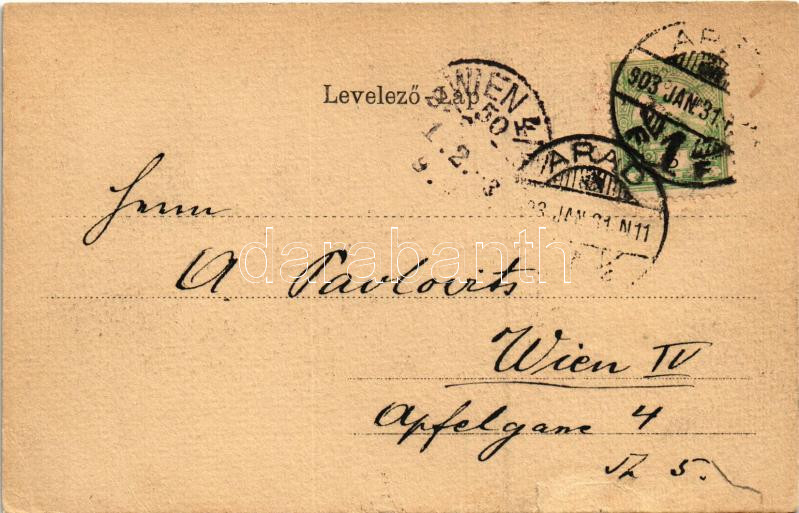 Levelező-Lap
WIEN 4/1
50
1. 2. 3
9.
ARAD
903 JAN. 31.
ARAD
903 JAN. 31. N11
Herrn
A Pavlovits
Wien IV
Apfelgasse 4
Th 5.
darabanth